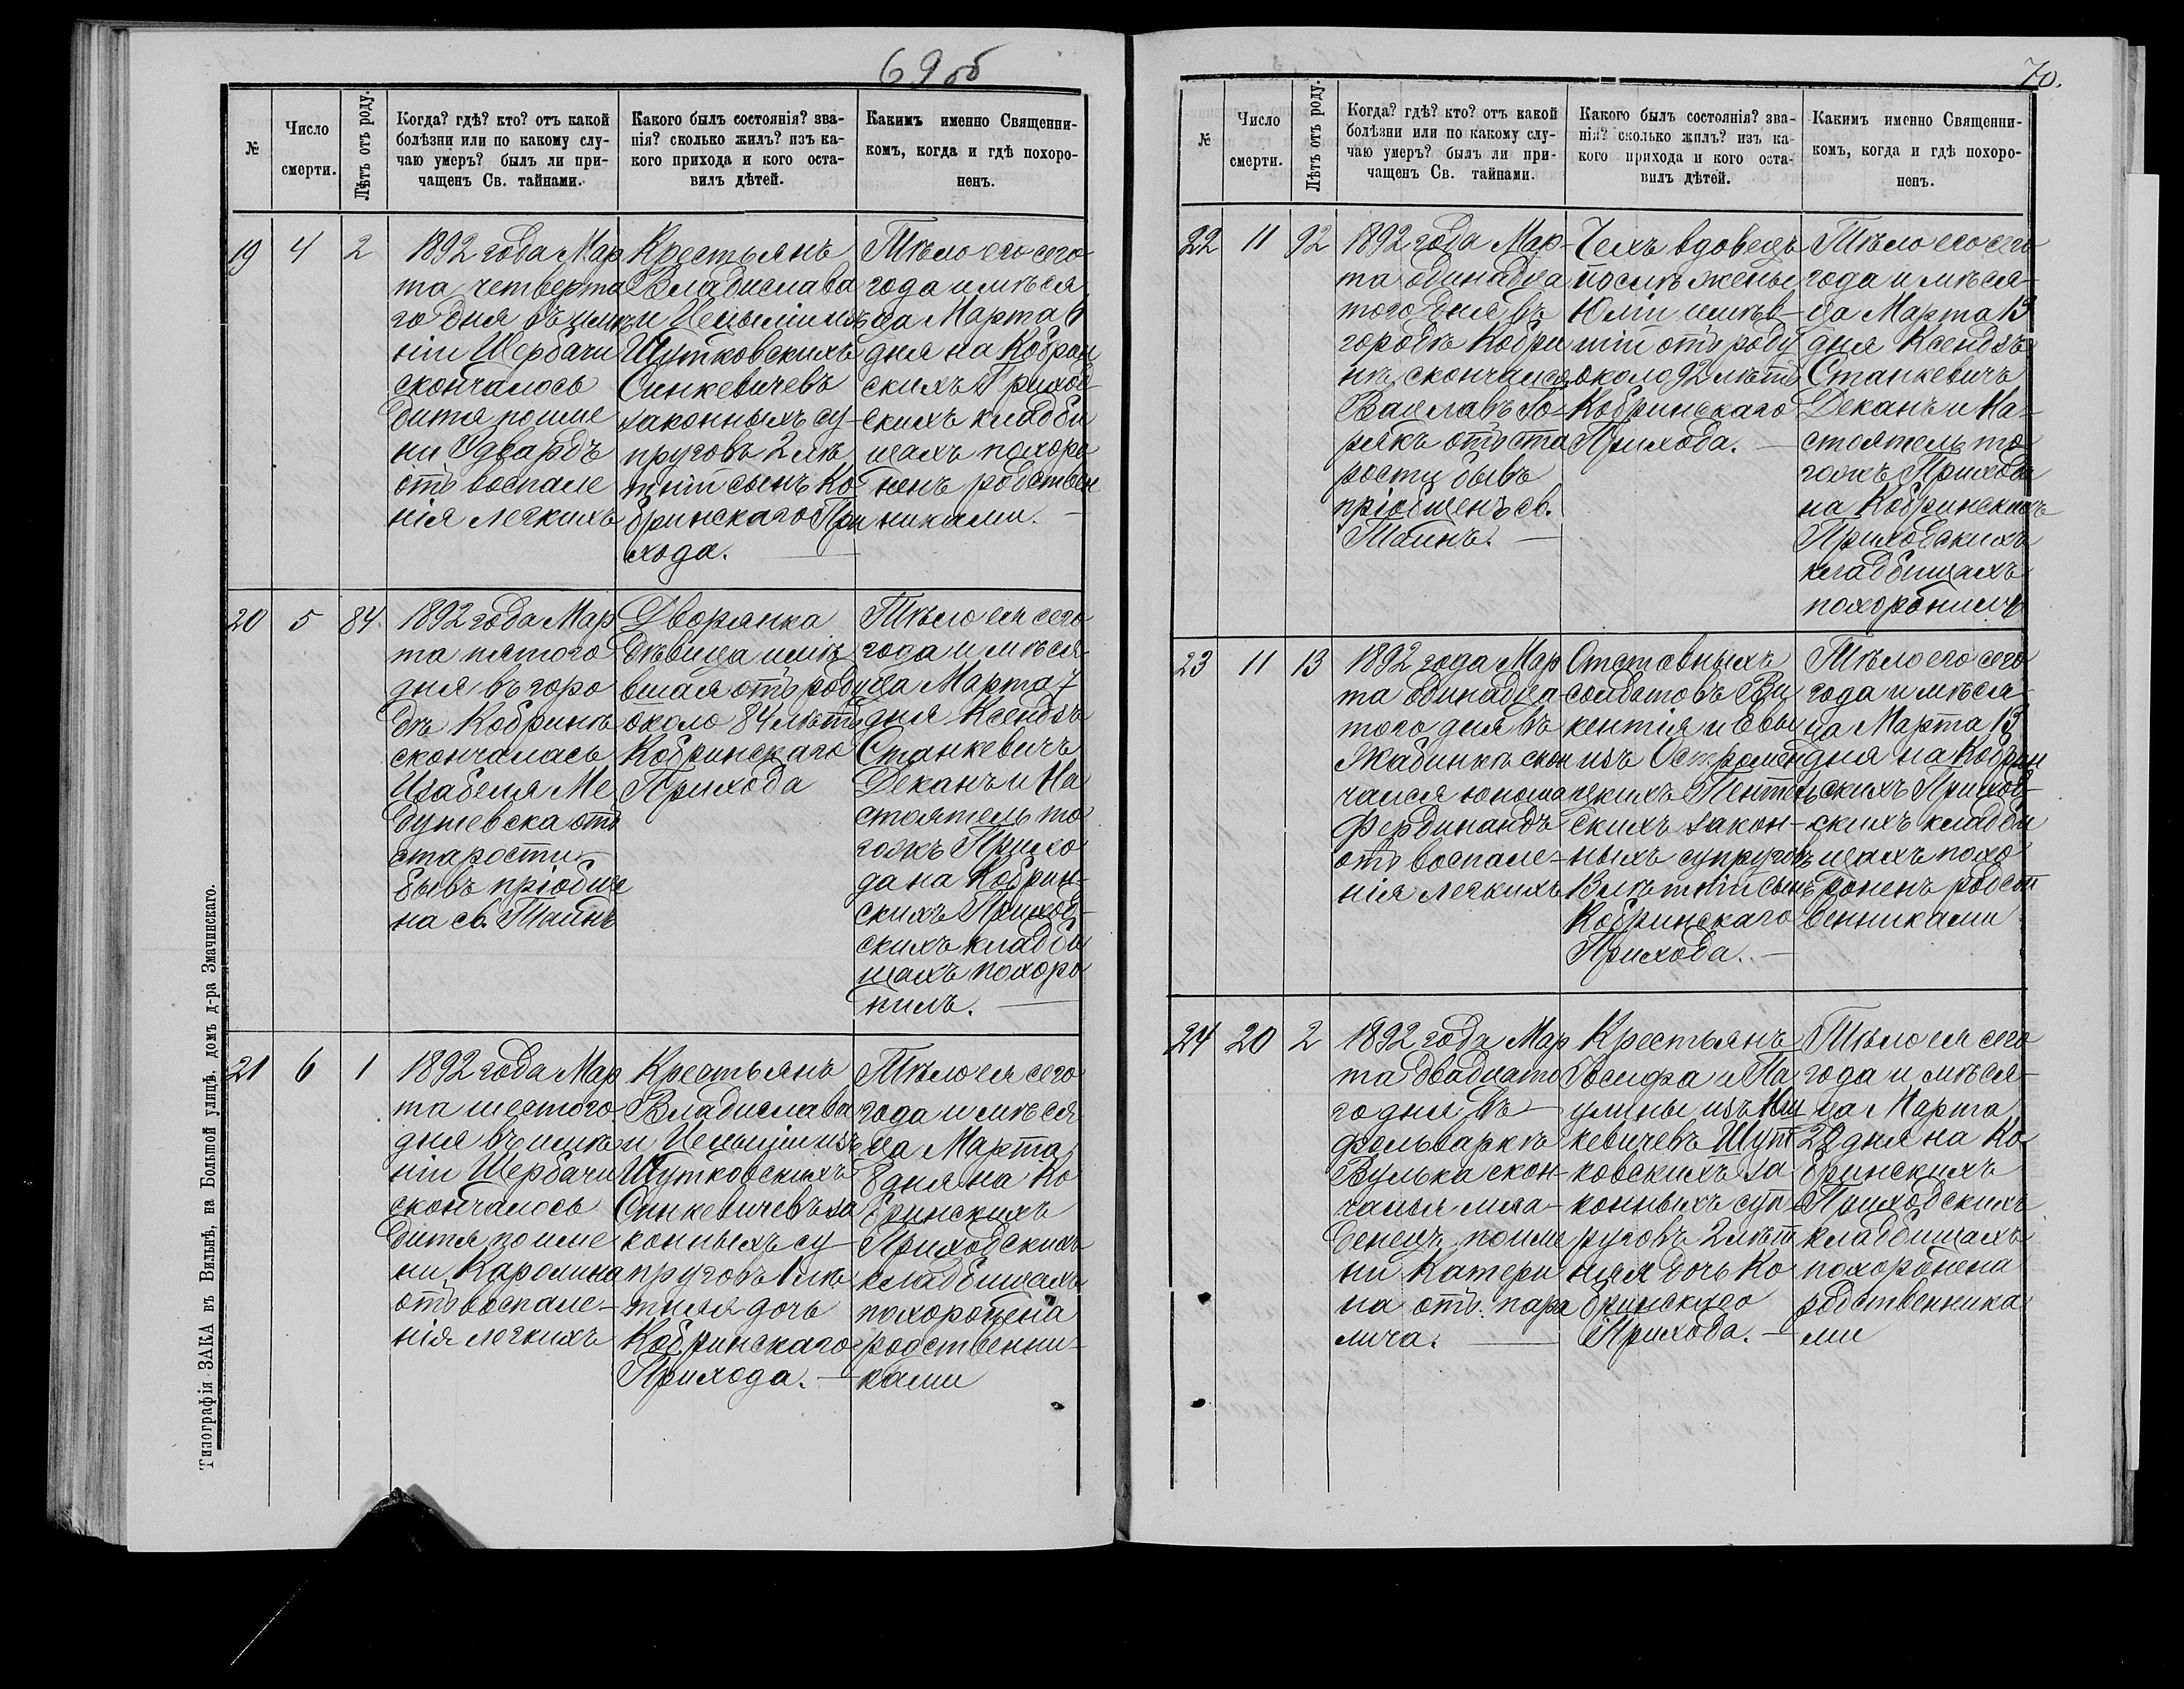 69 об
№
Число
смерти.
Лѣтъ отъ роду.
Когда? гдѣ? кто? отъ какой
болѣзни или по какому слу-
чаю умеръ? былъ ли при-
чащенъ Св. тайнами.
Какого былъ состоянія? зва-
нія? сколько жилъ? изъ ка-
кого прихода и кого оста-
вилъ дѣтей.
Какимъ именно Священни-
комъ, когда и гдѣ похоро-
ненъ.
19
4
2
1892 года Мар
та четверта
го дня въ имѣ
ніи Щербачи
скончалось
дитя по име
ни Эдвардъ
отъ воспале
нія легкихъ
Крестьянъ
Владислава
и
Шутковскихъ
Синкевичевъ
законныхъ су-
пруговъ 2 лѣ
тній сынъ Ко-
бринскаго При
хода.
Тѣло его сего
года и мѣся
ца Марта 6
дня на Кобрин
скихъ Приход-
скихъ кладби
щахъ похоро
ненъ родствен
никами.
20
5
84
1892 года Мар
та пятого
дня въ горо
дѣ Кобринѣ
скончалась
Изабеля Ме
душевска отъ
старости
бывъ пріобще
на св. Таинъ
Дворянка
дѣвица имѣ
вшая отъ роду
около 84 лѣтъ
Кобринскаго
Прихода
Тѣло ея сего
года и мѣся
ца Марта 7
дня Ксендзъ
Станкевичъ
Деканъ и На
стоятель то
гожъ Прихо
да на Кобрин-
скихъ Приход-
скихъ кладби
щахъ похоро
нилъ.
21
6
1
1892 года Мар
та шестого
дня въ имѣ
ніи Щербачи
скончалось
дитя по име
ни Каролина
отъ воспале-
нія легкихъ
Крестьянъ
Владислава
и изъ
Шутковскихъ
Синкевичевъ за
конныхъ су
пруговъ 1 лѣ
тняя дочь
Кобринскаго
Прихода.
Тѣло ея сего
года и мѣся
ца Марта
8 дня на Ко
бринскихъ
Приходскихъ
кладбищахъ
похоронена
родственни-
ками
Типографія ЗАКА въ Вильнѣ, на Большой улицѣ, домъ д-ра Змачинскаго.
70.
№
Число
смерти.
Лѣтъ отъ роду.
Когда? гдѣ? кто? отъ какой
болѣзни или по какому слу-
чаю умеръ? былъ ли при-
чащенъ Св. тайнами.
Какого былъ состоянія? зва-
нія? сколько жилъ? изъ ка-
кого прихода и кого оста-
вилъ дѣтей.
Какимъ именно Священни-
комъ, когда и гдѣ похоро-
ненъ.
22
11
92
1892 года Мар-
та одинадца
того дня въ
городѣ Кобри
нѣ скончался
Вацлавъ Го-
рякъ отъ ста
рости бывъ
пріобщенъ св.
Таинъ.
Чехъ вдовецъ
послѣ жены
Юліи имѣв-
шій отъ роду
около 92 лѣтъ
Кобринскаго
Прихода.
Тѣло его сего
года и мѣся-
ца Марта 13
дня Ксендзъ
Станкевичъ
Деканъ и На-
стоятель то
гожъ Прихода
на Кобринскихъ
Приходскихъ
кладбищахъ
похоронилъ
23
11
13
1892 года Мар
та одинадца-
того дня въ
Жабинкѣ скон
чался юноша
Фердинандъ
отъ воспале-
нія легкихъ
Отставныхъ
солдатовъ Ви
кентія и Евы
изъ
скихъ закон-
ныхъ супруговъ
13 лѣтній сынъ
Кобринскаго
Прихода.
Тѣло его сего
года и мѣся-
ца Марта 13
дня на Кобрин
скихъ Приход-
скихъ кладби
щахъ похо
роненъ родст
венниками
24
20
2
1892 года Мар
та двадцато
го дня въ
фольваркѣ
Вулька скон-
чался мла-
денецъ по име
ни Катери
на отъ пара
лича.
Крестьянъ
Іосифа и Па
улины изъ
кевичевъ Шут
ковскихъ за-
конныхъ суп
руговъ 2 лѣт
няя дочь Ко
бринскаго
Прихода.
Тѣло ея сего
года и мѣся-
ца Марта
22 дня на Ко
бринскихъ
Приходскихъ
кладбищахъ
похоронена
родственника
ми